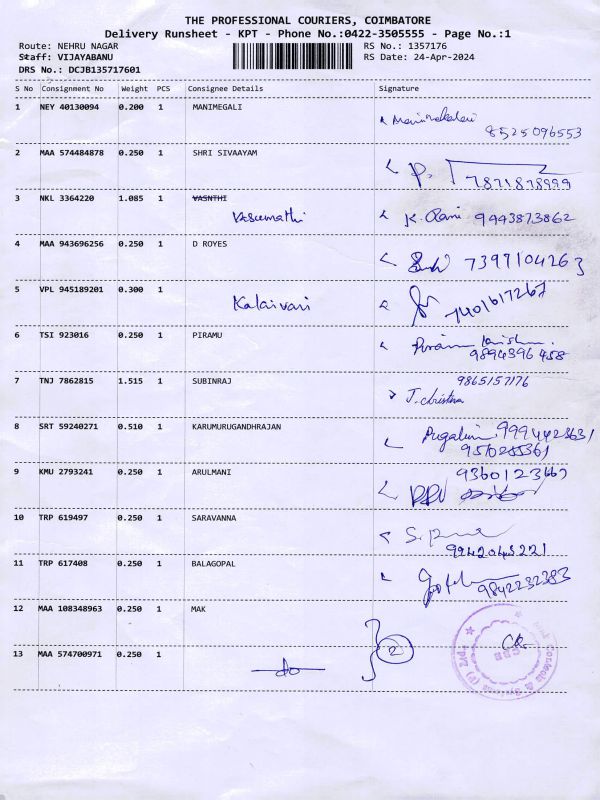 THE PROFESSIONAL COURIERS, COIMBATORE
Delivery Runsheet - KPT - Phone No.:0422-3505555 - Page No.:1
Route: NEHRU NAGAR RS No.: 1357176
Staff: VIJAYABANU RS Date: 24-Apr-2024
DRS No.: DCJB135717601
S No Consignment No Weight PCS Consignee Details Signature
1 NEY 40130094 0.200 1 MANIMEGALI
8525096553
2 MAA 574484878 0.250 1 SHRI SIVAAYAM
P. 7871878999
3 NKL 3364220 1.085 1 VASNTHI
Vasumathi K. Rani 9443873862
4 MAA 943696256 0.250 1 D ROYES
7397104263
5 VPL 945189201 0.300 1
Kalaivani 7401617267
6 TSI 923016 0.250 1 PIRAMU
9894396458
7 TNJ 7862815 1.515 1 SUBINRAJ 9865157176
J. christina
8 SRT 59240271 0.510 1 KARUMURUGANDHRAJAN
9 KMU 2793241 0.250 1 ARULMANI
10 TRP 619497 0.250 1 SARAVANNA
9942043221
11 TRP 617408 0.250 1 BALAGOPAL
9842232383
12 MAA 108348963 0.250 1 MAK
2
13 MAA 574700971 0.250 1
do